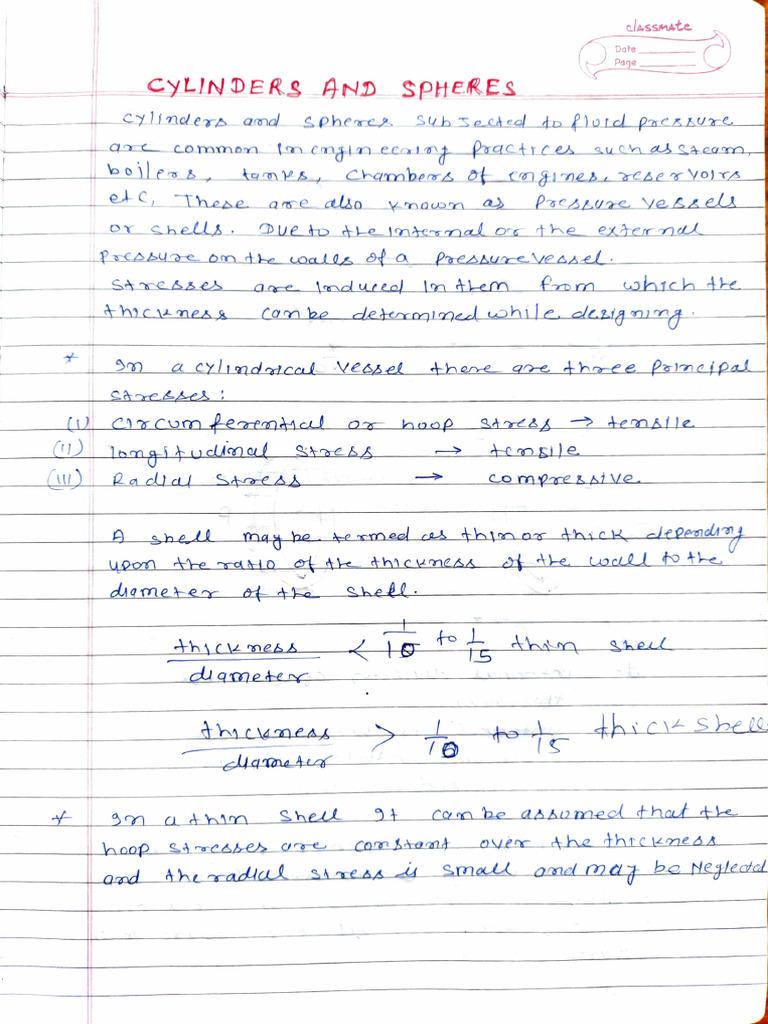 classmate
Date
Page
CYLINDERS AND SPHERES
Cylinders and spheres subjected to fluid pressure
are common in engineering practices such as steam,
boilers, tanks, chambers of engines, reservoirs
etc, These are also known as pressure vessels
or shells. Due to the internal or the external
pressure on the walls of a pressure vessel.
Stresses are induced in them from which the
thickness can be determined while designing.
* In a cylindrical vessel there are three principal
stresses:
(i) circumferential or hoop stress → tensile
(ii) longitudinal stress → tensile
(iii) Radial stress → compressive.
A shell may be termed as thin or thick depending
upon the ratio of the thickness of the wall to the
diameter of the shell.
thickness/diameter < 1/10 to 1/15 thin shell
thickness/diameter > 1/10 to 1/15 thick shell
* In a thin shell It can be assumed that the
hoop stresses are constant over the thickness
and the radial stress is small and may be Neglected